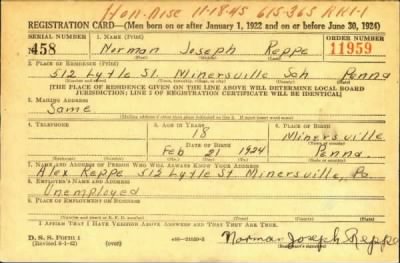 Hon-Disc 11-18-45 615-365 RH1-1
REGISTRATION CARD—(Men born on or after January 1, 1922 and on or before June 30, 1924)
SERIAL NUMBER 1. NAME (Print) ORDER NUMBER
458 Norman Joseph Reppe 11959
(First) (Middle) (Last)
2. PLACE OF RESIDENCE (Print)
512 Lytle St. Minersville Sch Penna
[THE PLACE OF RESIDENCE GIVEN ON THE LINE ABOVE WILL DETERMINE LOCAL BOARD
JURISDICTION; LINE 2 OF REGISTRATION CERTIFICATE WILL BE IDENTICAL]
3. MAILING ADDRESS
Same
[Mailing address if other than place indicated on line 2. If same insert word same]
4. TELEPHONE 5. AGE IN YEARS 6. PLACE OF BIRTH
18 Minersville
DATE OF BIRTH
Feb 21 1924 Penna.
7. NAME AND ADDRESS OF PERSON WHO WILL ALWAYS KNOW YOUR ADDRESS
Alex Reppe 512 Lytle St Minersville, Pa.
8. EMPLOYER'S NAME AND ADDRESS
Unemployed
9. PLACE OF EMPLOYMENT OR BUSINESS
I AFFIRM THAT I HAVE VERIFIED ABOVE ANSWERS AND THAT THEY ARE TRUE.
D. S. S. Form 1
(Revised 6-1-42) (over) Norman Joseph Reppe